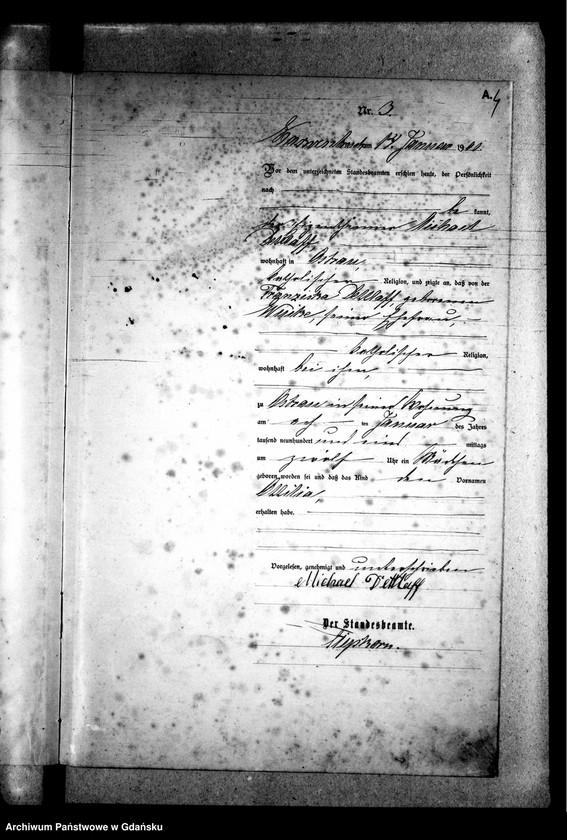 A.
4
Nr. 3.
am 13. Januar 1901.
Vor dem unterzeichneten Standesbeamten erschien heute, der Persönlichkeit
nach
be kannt,
der Eigenthümer Michael
Detlaff,
wohnhaft in Ostrau,
katholischer Religion, und zeigte an, daß von der
Franziska Detlaff, geborenen
seiner Ehefrau,
katholischer Religion,
wohnhaft bei ihm,
zu Ostrau in seiner Wohnung
am im Januar des Jahres
tausend neunhundert und eins mittags
um zwölf Uhr ein Mädchen
geboren worden sei und daß das Kind den Vornamen
erhalten habe.
Vorgelesen, genehmigt und unterschrieben
Michael Detlaff
Der Standesbeamte.
Archiwum Państwowe w Gdańsku